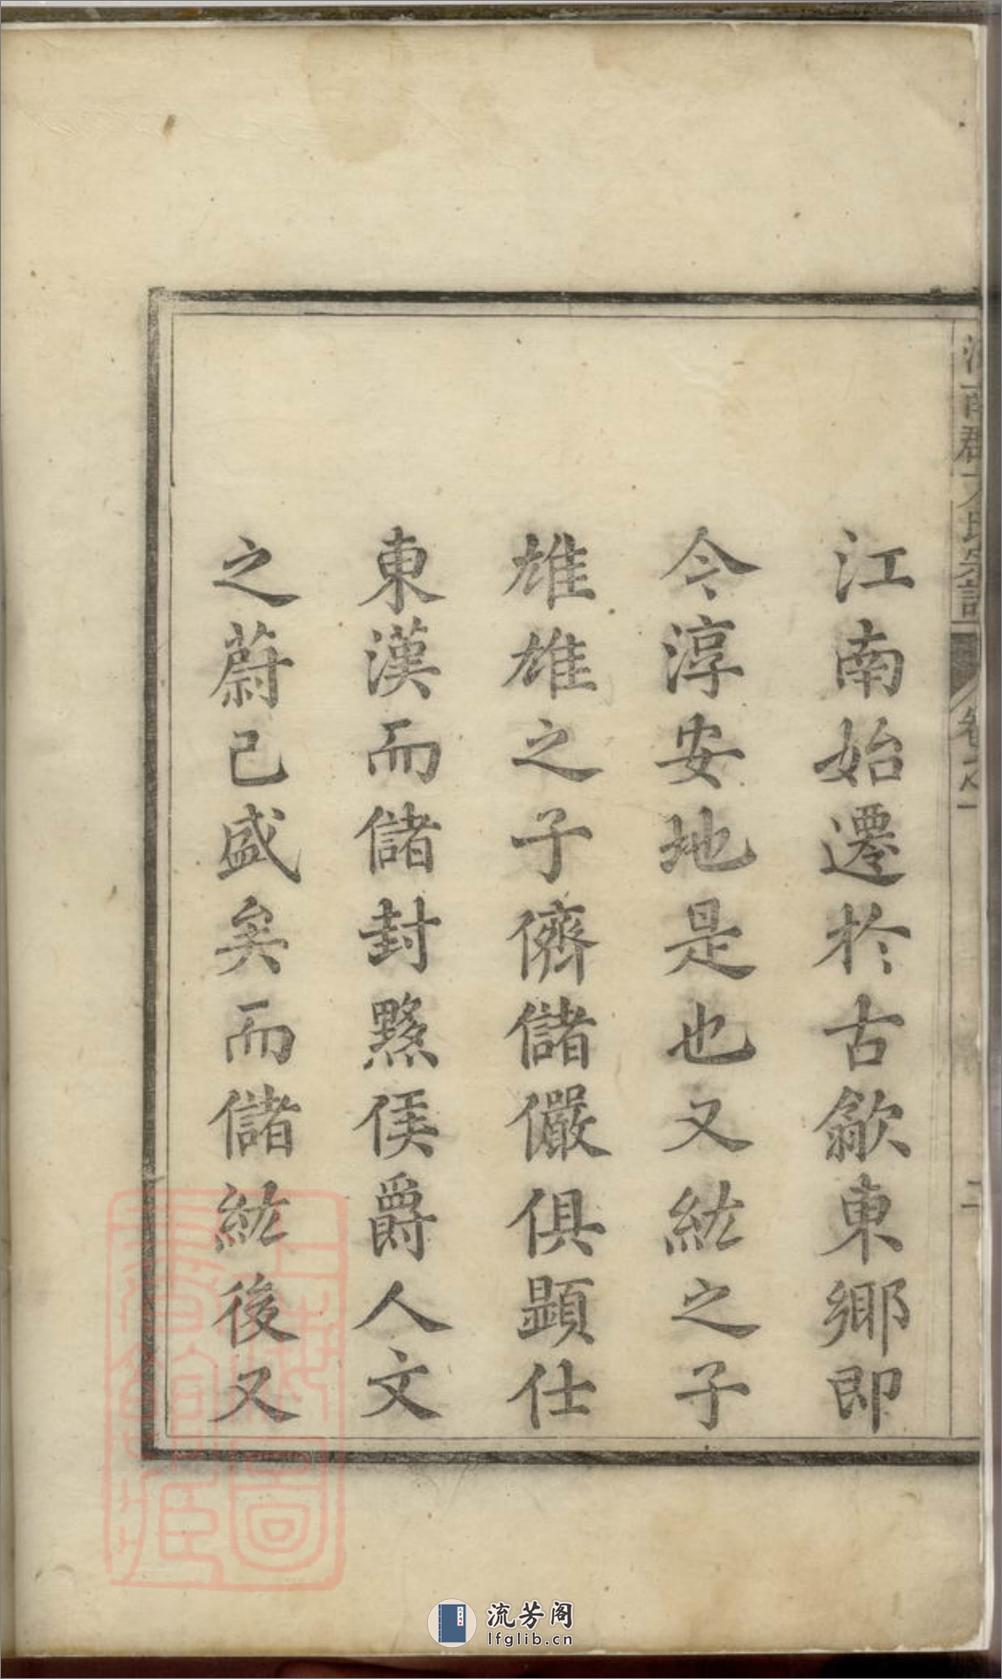 江南始遷於古歙東鄉即
今淳安地是也又紘之子
雄雄之子儕儲儼俱顯仕
東漢而儲封黟侯爵人文
之蔚己盛矣而儲紘後又
南郡方氏宗譜
卷之一
二
上海圖書館藏
流芳阁
lfglib.cn